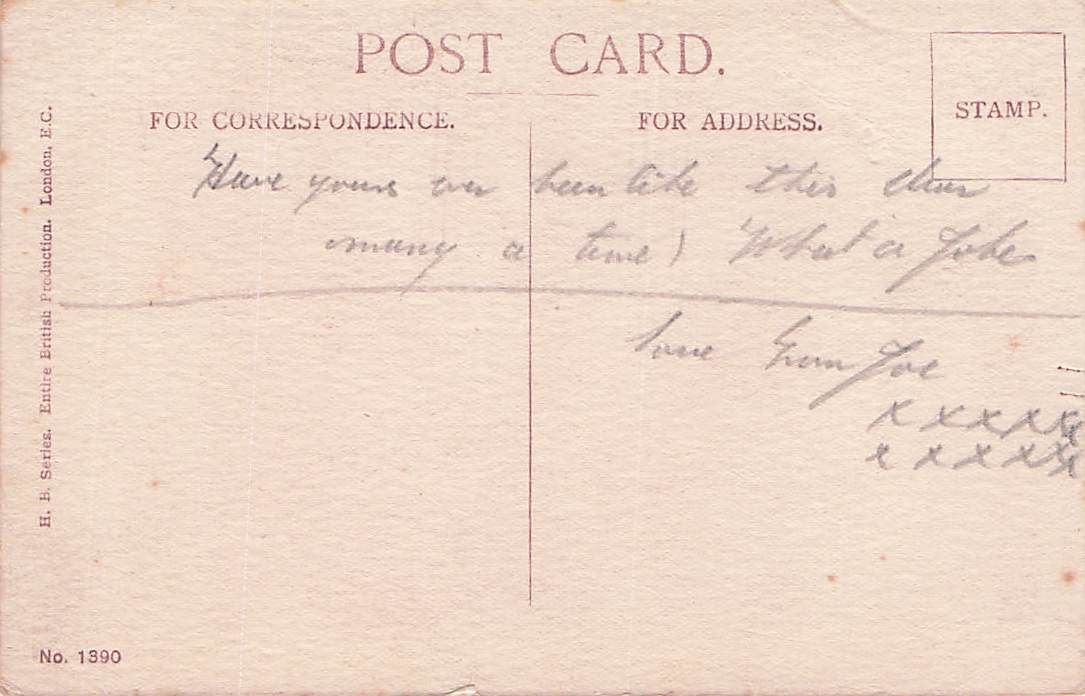 POST CARD.
FOR CORRESPONDENCE.
FOR ADDRESS.
STAMP.
Have yours ever been like this dear
many a time) What a Joke
Love from Joe
x x x x x
x x x x x
H. B. Series. Entire British Production. London, E.C.
No. 1390